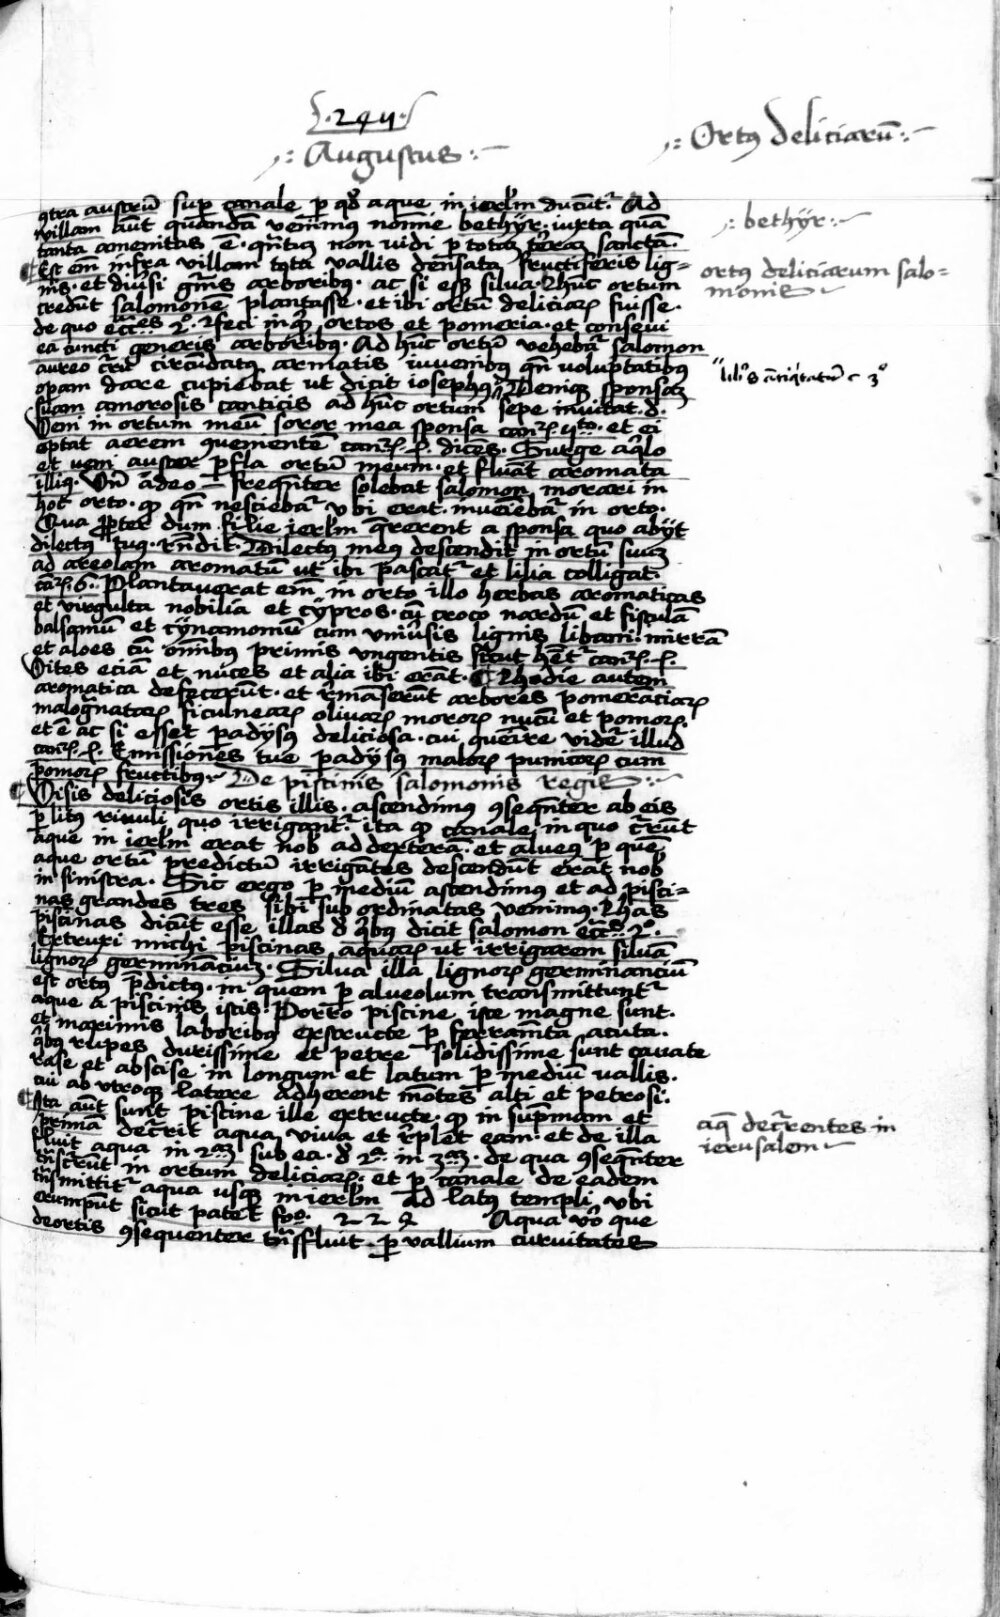 .247.
Augustus
Ortꝯ deliciarū
ꝯtra austrū sup canale p qd̄ aque in ierl̄m ducūtr̄. Ad
villam aūt quandā venimꝯ nomine bethÿr. iuxta quā
tanta amenitas ē. qn̄tū non vidi p totā terrā sanctā.
Est em̄ infra villam tota vallis densata fructiferis lig=
nis. et diūsi gn̄is arboribꝯ. ac si esset silua. Et hūc ortum
credūt salomonē plantasse. et ibi ortū deliciaꝝ fuisse.
de quo ecc̄es 2º. feci inqͥ ortos et pomeria. et conseui
ea cuncti generis arboribꝯ. Ad hūc ortū vehebat̄ salomon
aureo curru circūdatꝯ armatis iuuenibꝯ qn̄ voluptatibꝯ
opam dare cupiebat ut dicit iosephꝯ. Deniqꝫ sponsaꝫ
suam amorosis canticis ad hūc ortum sepe inuitat. d.
Veni in ortum meū soror mea sponsa canꝝ. 5to. et ei
optat aerem ꝯuenientē canꝝ. 4. dicēs. Surge aqͥlo
et veni auster pfla ortū meum. et fluāt aromata
illiꝯ. Vn̄ adeo freqn̄ter solebat salomon morari in
hoc orto. qꝙ qn̄ nesciebat̄ vbi erat. inueniebat̄ in orto.
Qua ppter dum filie ierl̄m qrerent a sponsa quo abÿt
dilectꝯ tuꝯ. rn̄dit. Dilectꝯ meꝯ descendit in ortū suuꝫ
ad areolam aromatū ut ibi pascatr̄ et lilia colligat.
canꝝ. 6. Plantauerat em̄ in orto illo herbas aromaticas
et virgulta nobilia et cÿpros. cū croco nardū et fistulā
balsamū et cÿnamomū cum vniūsis lignis libani. mirrā
et aloes cū om̄ibꝯ primis vngentis sicut hētr̄ canꝝ. 4.
Vites eciā et nuces et alia ibi erāt. Hodie autem
aromatica defecerūt. et rmāserūt arbores pomerāciaꝝ
malogn̄ataꝝ ficulneaꝝ oliuaꝝ moroꝝ nucū et pomoꝝ.
et ē ac si esset padysꝯ deliciosa. cui ꝯuenire videt̄ illud
canꝝ. 4. Emissiones tue padÿsꝯ maloꝝ punicoꝝ cum
pomoꝝ fructibꝯ. De piscinis salomonis regis
Visis deliciosis ortis illis. ascendimꝯ ꝯseqn̄ter ab eis
p litꝯ riuuli quo irrigantr̄. ita qꝙ canale in quo currūt
aque in ierl̄m erat nob̄ ad dexterā. et alueꝯ p quē
aque ortū predictū irrigātes descendūt erat nob̄
in sinistra. Sic ergo p mediū ascendimꝯ et ad pisci=
nas grandes tres sibi sub ordinatas venimꝯ. Has
piscinas dicūt esse illas d qͥbꝯ dicit salomon ecc̄s 2º.
Extruxi michi piscinas aquaꝝ ut irrigarem siluā
lignoꝝ germinanciuꝫ. Silua illa lignoꝝ germinanciū
est ortꝯ p̄dictꝯ. in quem p alueolum transmittuntr̄
aque a piscinis istis. Porro piscine iste magne sunt.
et maximis laboribꝯ exstructe p ferramn̄ta acuta.
qͥbꝯ rupes durissime et petre solidissime sunt cauate
rase et abscise in longum et latum p mediū vallis.
cui ab vtroqꝫ latere adherent mōtes alti et petrosi.
Ita aūt sunt piscine ille extructe. qꝙ in supmam et
primā decurrit aqua viua et rplet eam. et de illa
fluit aqua in 2aꝫ sub ea. d 2a. in 3aꝫ. de qua ꝯseqn̄ter
trāscurrūt in ortum deliciaꝝ. et p canale de eadem
trāsmittitr̄ aqua usqꝫ in ierl̄m ad latꝯ templi vbi
erumpūt sicut patet foº. 229 Aqua vō que
deortis ꝯsequenter trāsfluit p vallium curuitates
bethÿr
ortꝯ deliciarum salo=
monis
lib's antiqͥtatū c 3º
aq̄ decurrentes in
ierusalem